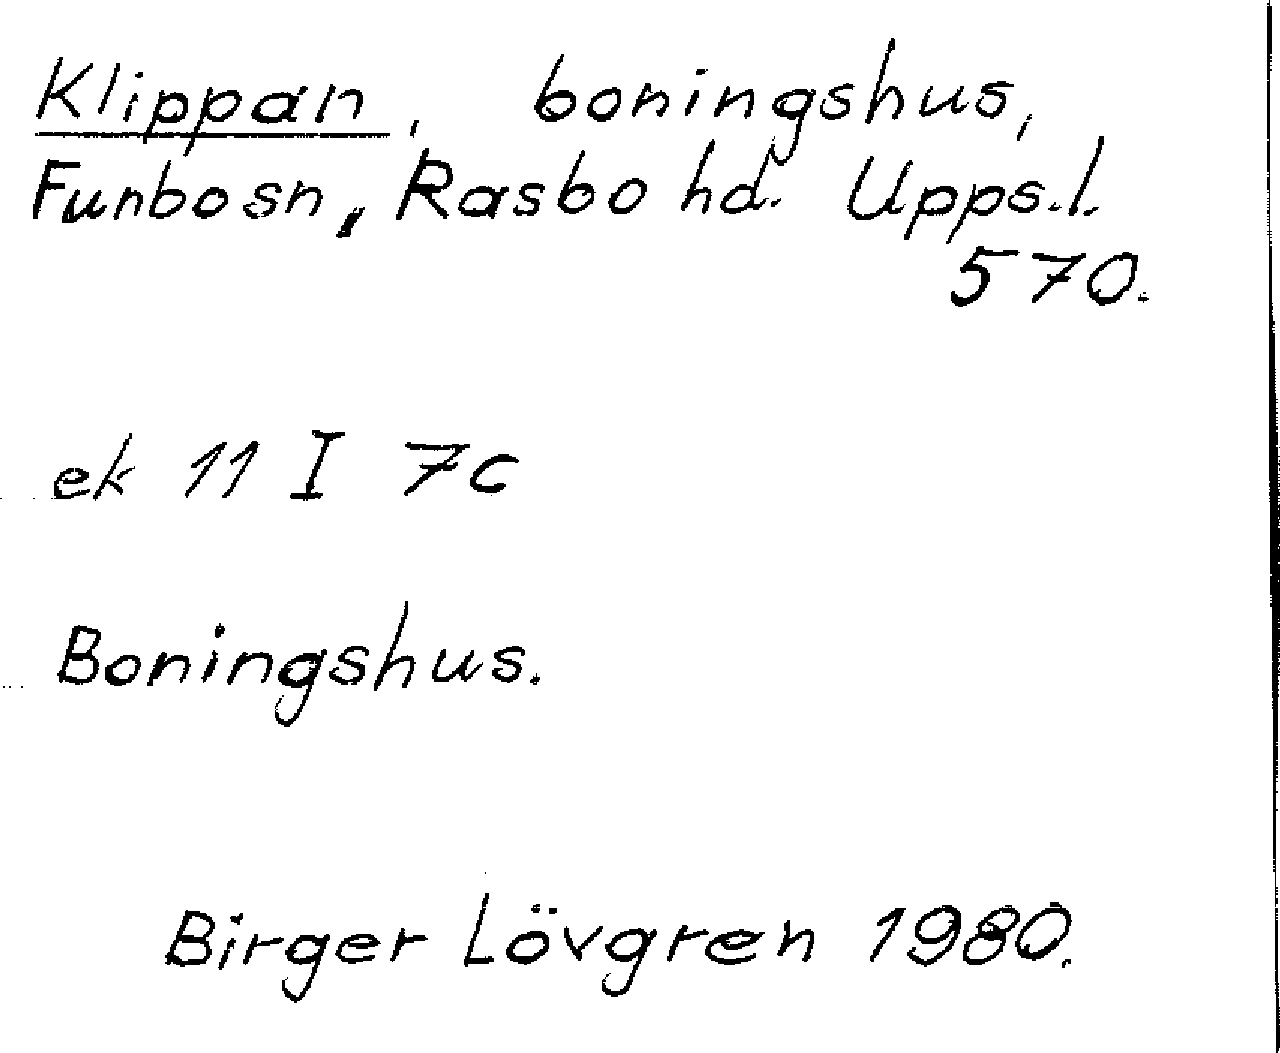 Klippan, boningshus,
Funbo sn, Rasbo hd. Upps.l.
570.
ek 11 I 7c
Boningshus.
Birger Lövgren 1980.